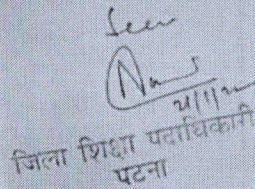 Seen
जिला शिक्षा पदाधिकारी
पटना